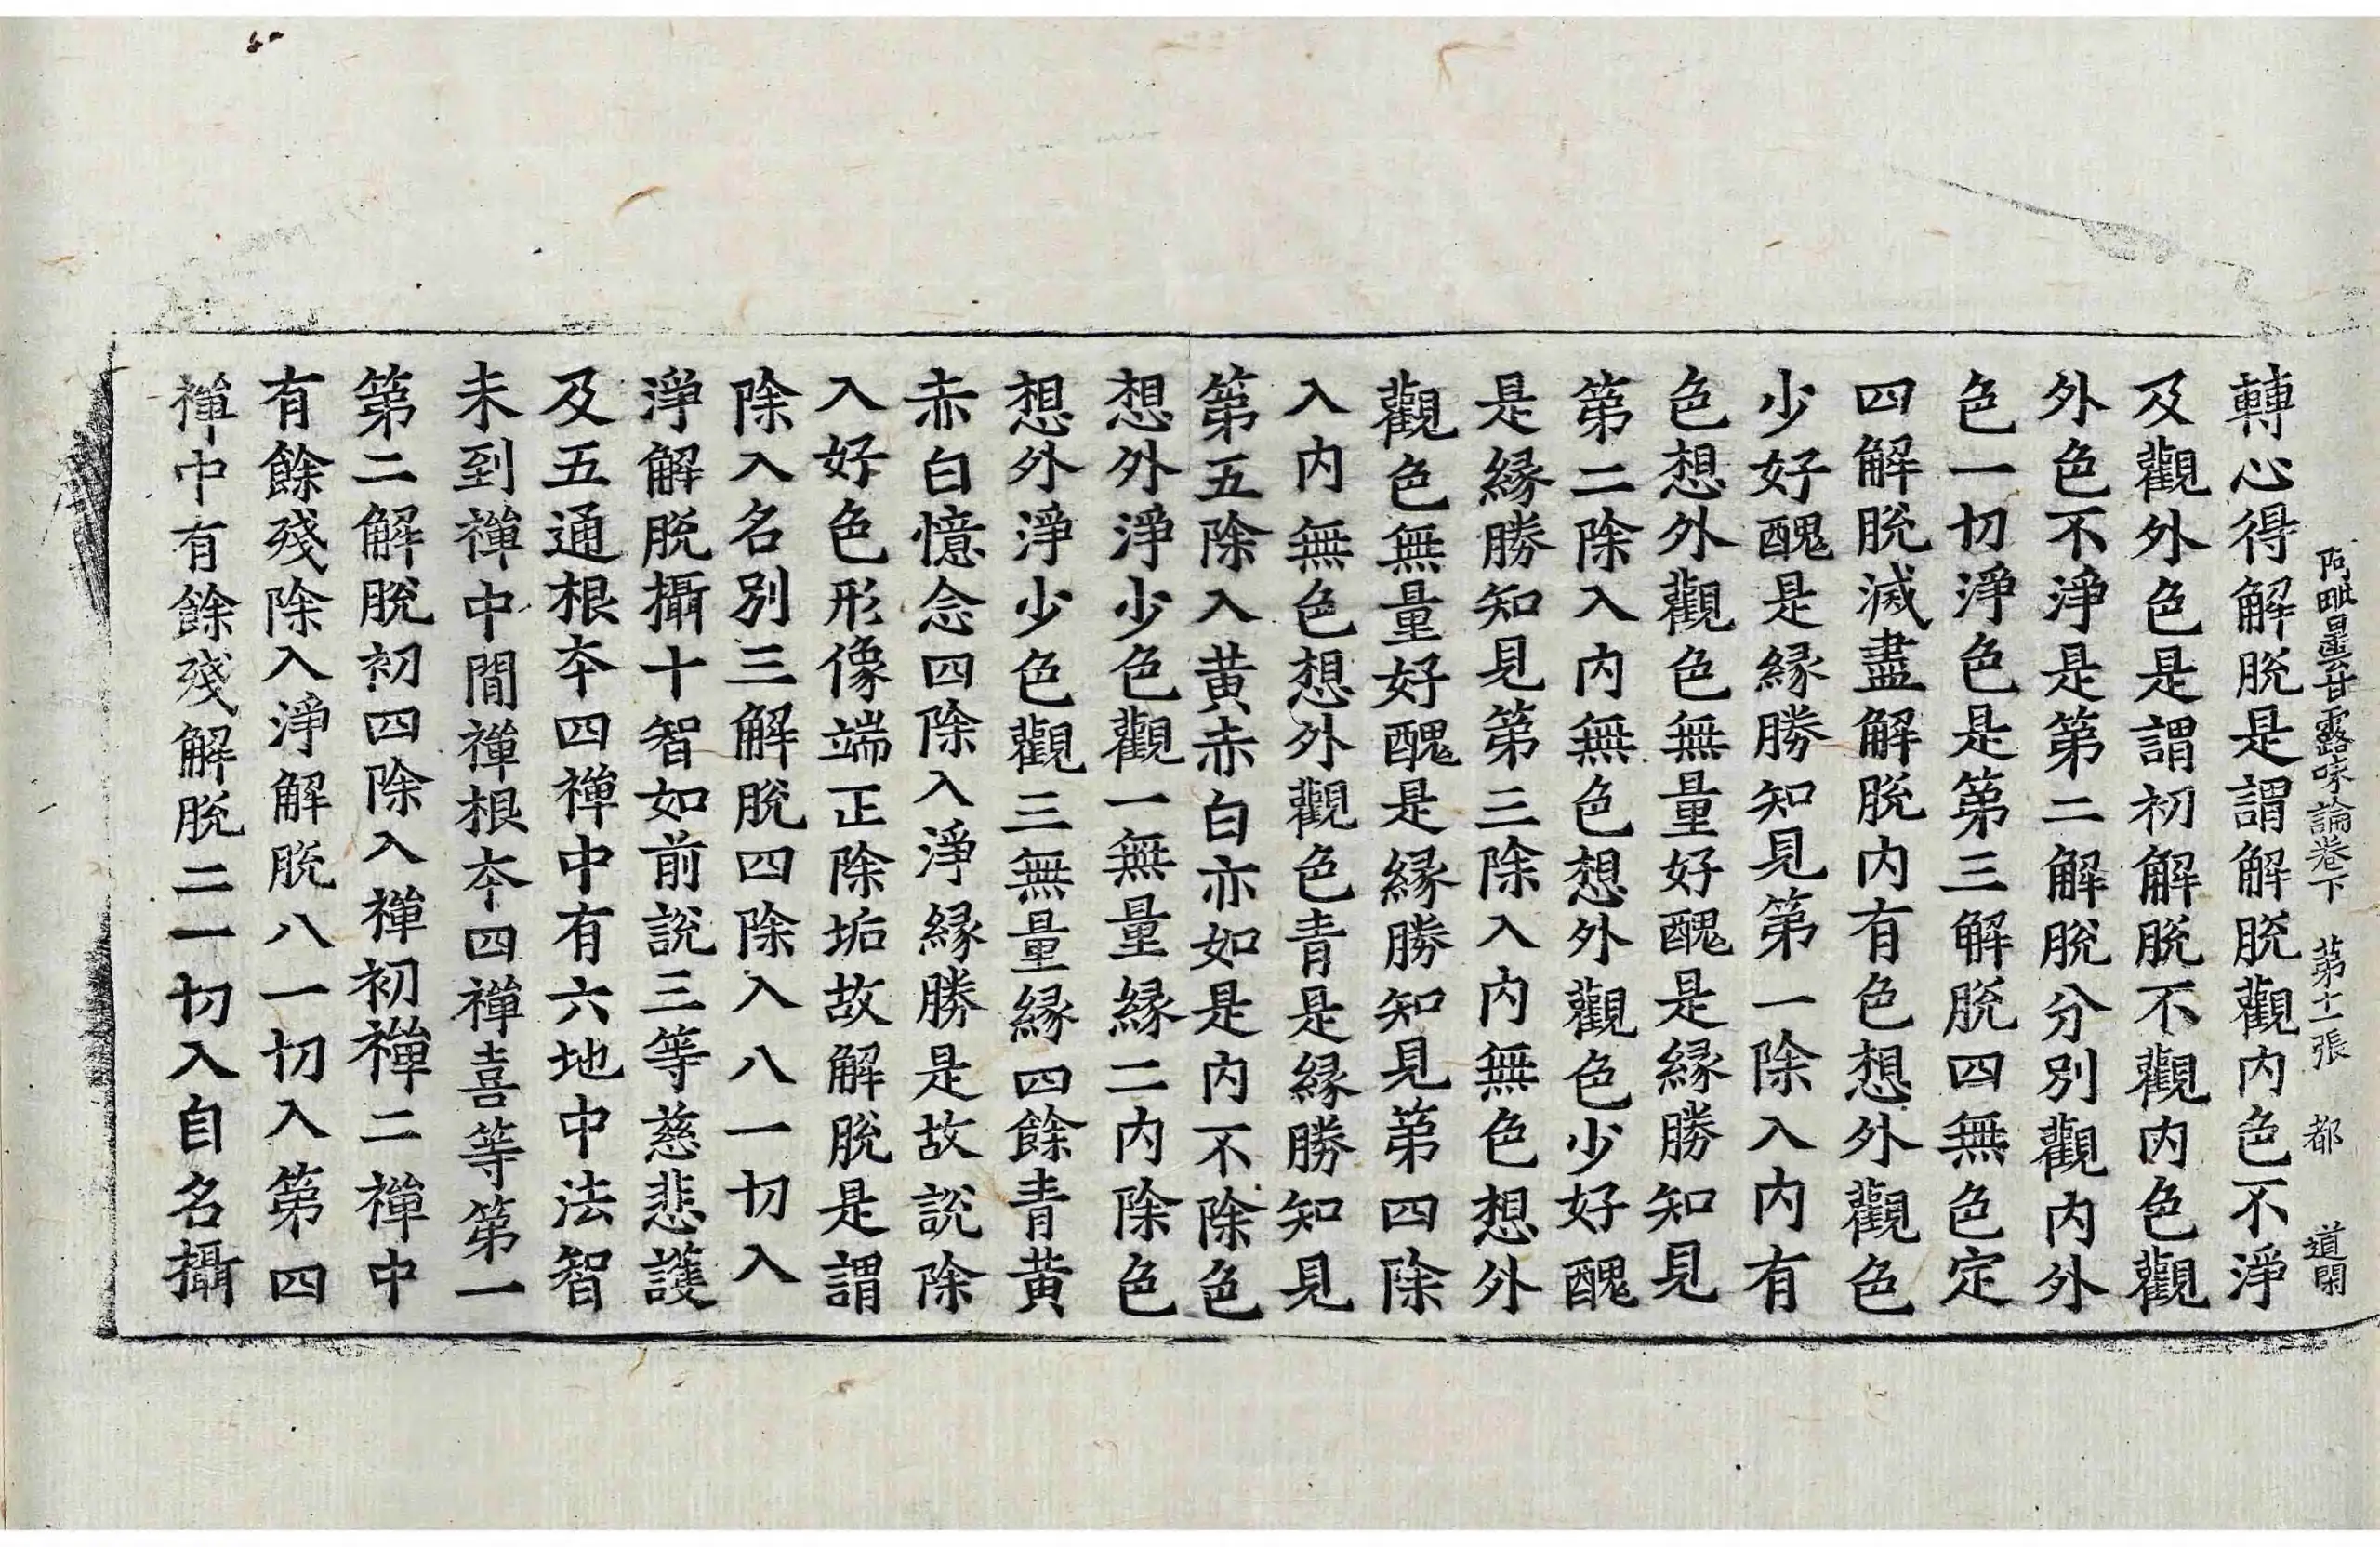 阿毗曇甘露味論卷下 第十一張 都 道閑
轉心得解脫是謂解脫觀内色不淨
及觀外色是謂初解脫不觀内色觀
外色不淨是第二解脫分別觀内外
色一切淨色是第三解脫四無色定
四解脫滅盡解脫内有色想外觀色
少好醜是縁勝知見第一除入内有
色想外觀色無量好醜是縁勝知見
第二除入内無色想外觀色少好醜
是縁勝知見第三除入内無色想外
觀色無量好醜是縁勝知見第四除
入内無色想外觀色青是縁勝知見
第五除入黃赤白亦如是内不除色
想外淨少色觀一無量縁二内除色
想外淨少色觀三無量縁四餘青黃
赤白憶念四除入淨縁勝是故說除
入好色形像端正除垢故解脫是謂
除入名別三解脫四除入八一切入
淨解脫攝十智如前說三等慈悲護
及五通根夲四禪中有六地中法智
未到禪中間禪根夲四禪喜等第一
第二解脫初四除入禪初禪二禪中
有餘殘除入淨解脫八一切入第四
禪中有餘殘解脫二一切入自名攝